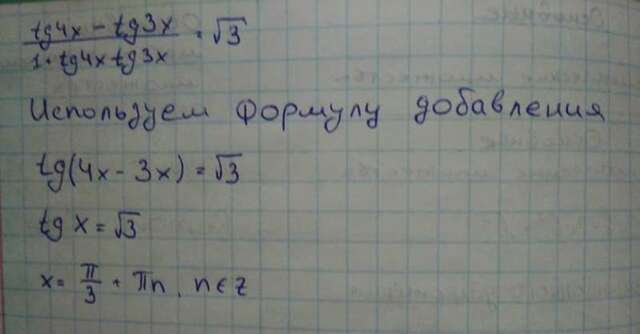 tg4x - tg3x / 1+tg4x tg3x = √3
Используем формулу добавления
tg(4x - 3x) = √3
tg x = √3
x = π/3 + πn, n∈z